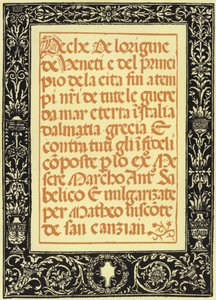 Deche de lorigine
de Veneti e del princi
pio de la cita fin a tem
pi nr̃i de tute le guere
da mar e terra ĩ italia
dalmatia grecia &
contra tuti gli ĩfideli
cõposte p lo ex̃ Me
sere Marcho Ant Sa
belico & vulgarizate
per Matheo viscõte
de san canzian